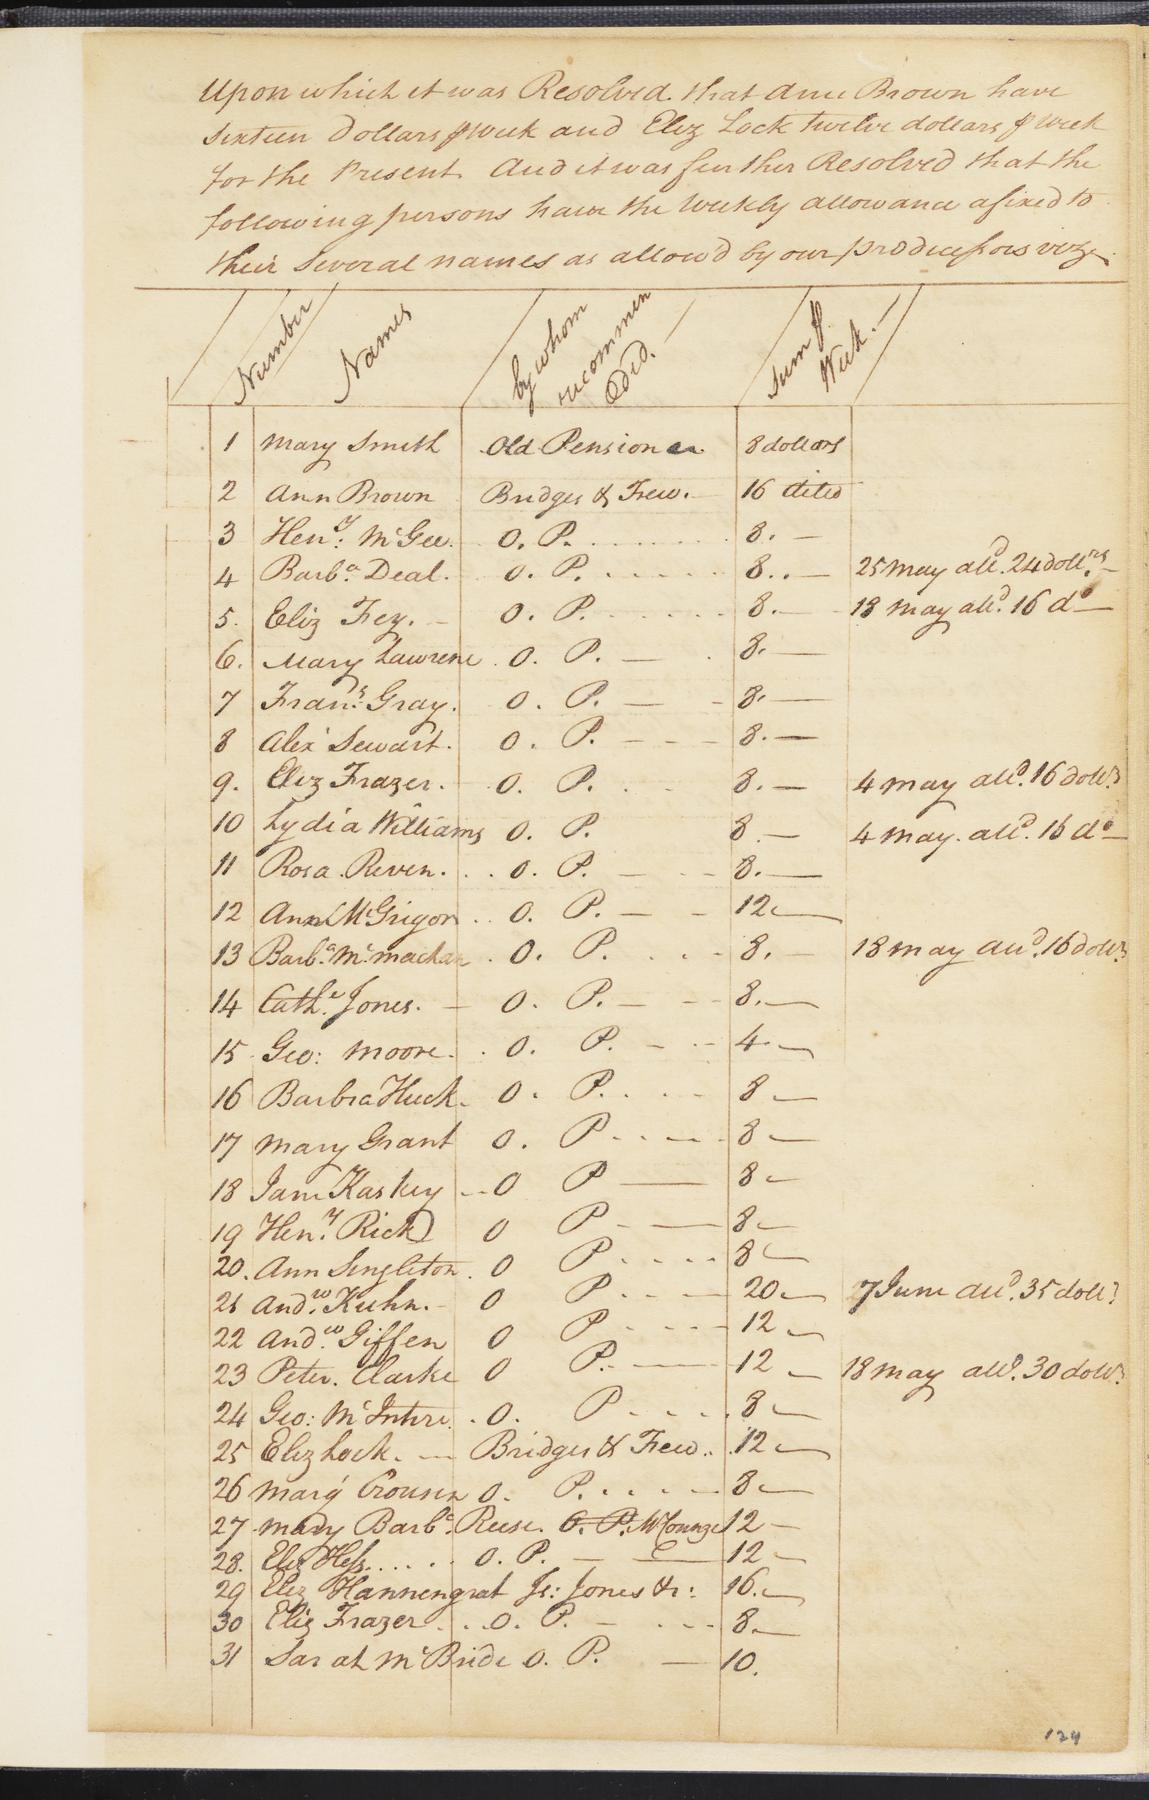 Upon which it was Resolved. that Ann Brown have
Sixteen Dollars ⅌ Week and Eliz Lock twelve dollars ⅌ Week
for the Present. And it was further Resolved that the
following persons have the Weekly allowance afixed to
their Several names as allow'd by our prodecessors vizt
Number Names by whom recommended. Sum ⅌ Week. —
1 Mary Smith Old Pensioner 8 dollars
2 Ann Brown Bridges & Frew. 16 ditto
3 Heny. McGee. O. P. 8. —
4 Barba. Deal. O. P. 8. — 25 May alld. 24 dollrs. —
5. Eliz Fey. O. P. 8. — 18 May alld. 16 do —
6. Mary Lawrene O. P. — 8. —
7 Frans. Gray. O. P. — 8. —
8 Alexr Sewart. O. P. — 8. —
9. Eliz Frazer. O. P. 8. — 4 May alld. 16 dolls.
10 Lydia Williams O. P. 8 — 4 May. alld. 16 do —
11 Rosa. Reven. O. P. — 8. —
12 Ann McGrigor O. P. — 12 —
13 Barba. Mc O. P. 8. — 18 May alld. 16 dolls.
14 Cathe. Jones. — O. P. — 8. —
15 Geo: Moore. O. P. — 4 —
16 Barbra Huck. O. P. 8 —
17 Mary Grant O. P 8 —
18 Jane Kaskey O P — 8 —
19 Heny. Rick O P — 8 —
20. Ann Singleton. O P 8 —
21 Andw. Kuhn. O P 20 — 7 June alld. 35 dolls.
22 Andw. Giffen O P 12 —
23 Peter. Clarke O P. — 12 — 18 May alld. 30 dolls.
24 Geo: McIntire. O. P 8 —
25 Eliz Lock. — Bridges & Frew. 12 —
26 Marg O. P. 8 —
27 Mary Barba. Reese. O. P. 12 —
28. Eliz Hess. O. P. — 12 —
29 Eliz Hannengrat Js: Jones &c: 16. —
30 Eliz Frazer. O. P. — 8. —
31 Sarah McBride O. P. — 10.
124